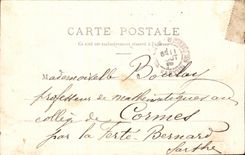 CARTE POSTALE
Ce côté est exclusivement réservé à l'adresse
Mademoiselle Boullay
professeur de mathématiques au
collège de Cormes
par la Ferté-Bernard
Sarthe